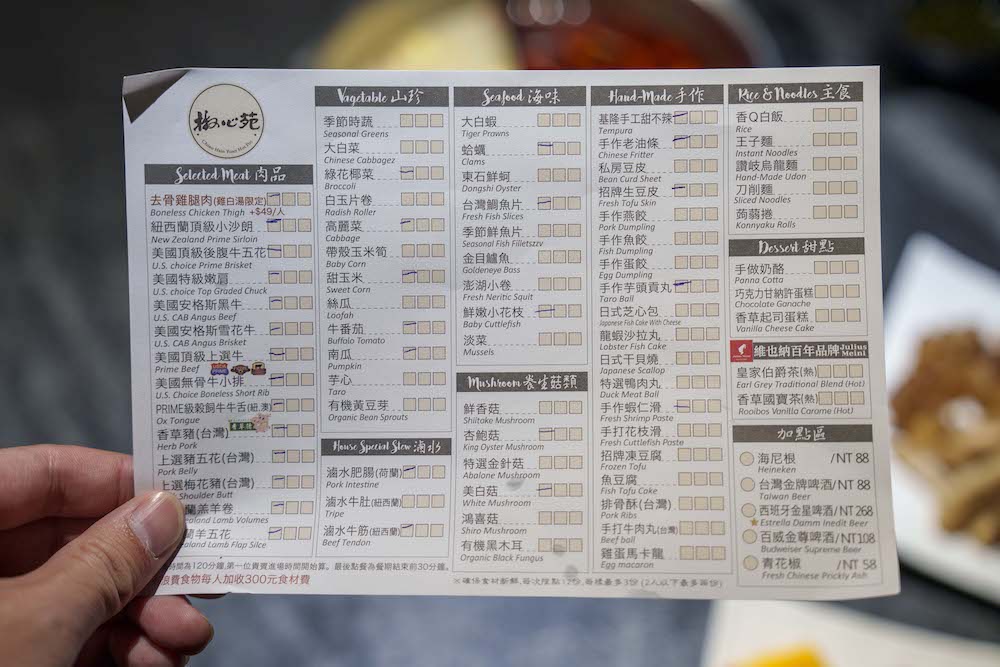 椒心苑
Selected Meat 肉品
去骨雞腿肉(雞白湯限定)
Boneless Chicken Thigh +$49/人
紐西蘭頂級小沙朗
New Zealand Prime Sirloin
美國頂級後腹牛五花
U.S. choice Prime Brisket
美國特級嫩肩
U.S. choice Top Graded Chuck
美國安格斯黑牛
U.S. CAB Angus Beef
美國安格斯雪花牛
U.S. CAB Angus Brisket
美國頂級上選牛
Prime Beef
美國無骨牛小排
U.S. Choice Boneless Short Rib
PRIME級穀飼牛牛舌(紐.澳)
Ox Tongue
香草豬(台灣)
Herb Pork
上選豬五花(台灣)
Pork Belly
上選梅花豬(台灣)
Shoulder Butt
蘭羔羊卷
aland Lamb Volumes
蘭羊五花
aland Lamb Flap Silce
Vagetable 山珍
季節時蔬
Seasonal Greens
大白菜
Chinese Cabbagez
綠花椰菜
Broccoli
白玉片卷
Radish Roller
高麗菜
Cabbage
帶殼玉米筍
Baby Corn
甜玉米
Sweet Corn
絲瓜
Loofah
牛番茄
Buffalo Tomato
南瓜
Pumpkin
芋心
Taro
有機黃豆芽
Organic Bean Sprouts
House Special Stew 滷水
滷水肥腸(荷蘭)
Pork Intestine
滷水牛肚(紐西蘭)
Tripe
滷水牛筋(紐西蘭)
Beef Tendon
Seafood 海味
大白蝦
Tiger Prawns
蛤蠣
Clams
東石鮮蚵
Dongshi Oyster
台灣鯛魚片
Fresh Fish Slices
季節鮮魚片
Seasonal Fish Filletszzv
金目鱸魚
Goldeneye Bass
澎湖小卷
Fresh Neritic Squit
鮮嫩小花枝
Baby Cuttiefish
淡菜
Mussels
Mushroom 養生菇類
鮮香菇
Shiitake Mushroom
杏鮑菇
King Oyster Mushroom
特選金針菇
Abalone Mushroom
美白菇
White Mushroom
鴻喜菇
Shiro Mushroom
有機黑木耳
Organic Black Fungus
Hand-Made 手作
基隆手工甜不辣
Tempura
手作老油條
Chinese Fritter
私房豆皮
Bean Curd Sheet
招牌生豆皮
Fresh Tofu Skin
手作燕餃
Pork Dumpling
手作魚餃
Fish Dumpling
手作蛋餃
Egg Dumpling
手作芋頭貢丸
Taro Ball
日式芝心包
Japanese Fish Cake With Cheese
龍蝦沙拉丸
Lobster Fish Cake
日式干貝燒
Japanese Scallop
特選鴨肉丸
Duck Meat Ball
手作蝦仁滑
Fresh Shrimp Paste
手打花枝滑
Fresh Cuttlefish Paste
招牌凍豆腐
Frozen Tofu
魚豆腐
Fish Tafu Cake
排骨酥(台灣)
Pork Ribs
手打牛肉丸(台灣)
Beef ball
雞蛋馬卡龍
Egg macaron
Rice & Noodles 主食
香Q白飯
Rice
王子麵
Instant Noodles
讚岐烏龍麵
Hand-Made Udon
刀削麵
Sliced Noodles
蒟蒻捲
Konnyaku Rolls
Dessert 甜點
手做奶酪
Panna Cotta
巧克力甘納許蛋糕
Chocolate Ganache
香草起司蛋糕
Vanilla Cheese Cake
維也納百年品牌 Julius Meinl
皇家伯爵茶(熱)
Earl Grey Traditional Blend (Hot)
香草國寶茶(熱)
Rooibos Vanilla Carome (Hot)
加點區
海尼根 /NT 88
Heineken
台灣金牌啤酒/NT 88
Taiwan Beer
西班牙金星啤酒/NT 268
Estrella Damm Inedit Beer
百威金尊啤酒/NT108
Budweiser Supreme Beer
青花椒 /NT 58
Fresh Chinese Prickly Ash
時間為120分鐘,第一位貴賓進場時間開始算。最後點餐為餐期結束前30分鐘。
浪費食物每人加收300元食材費
※確保食材新鮮,每次限點12份,每樣最多3份(2人以下最多兩份)